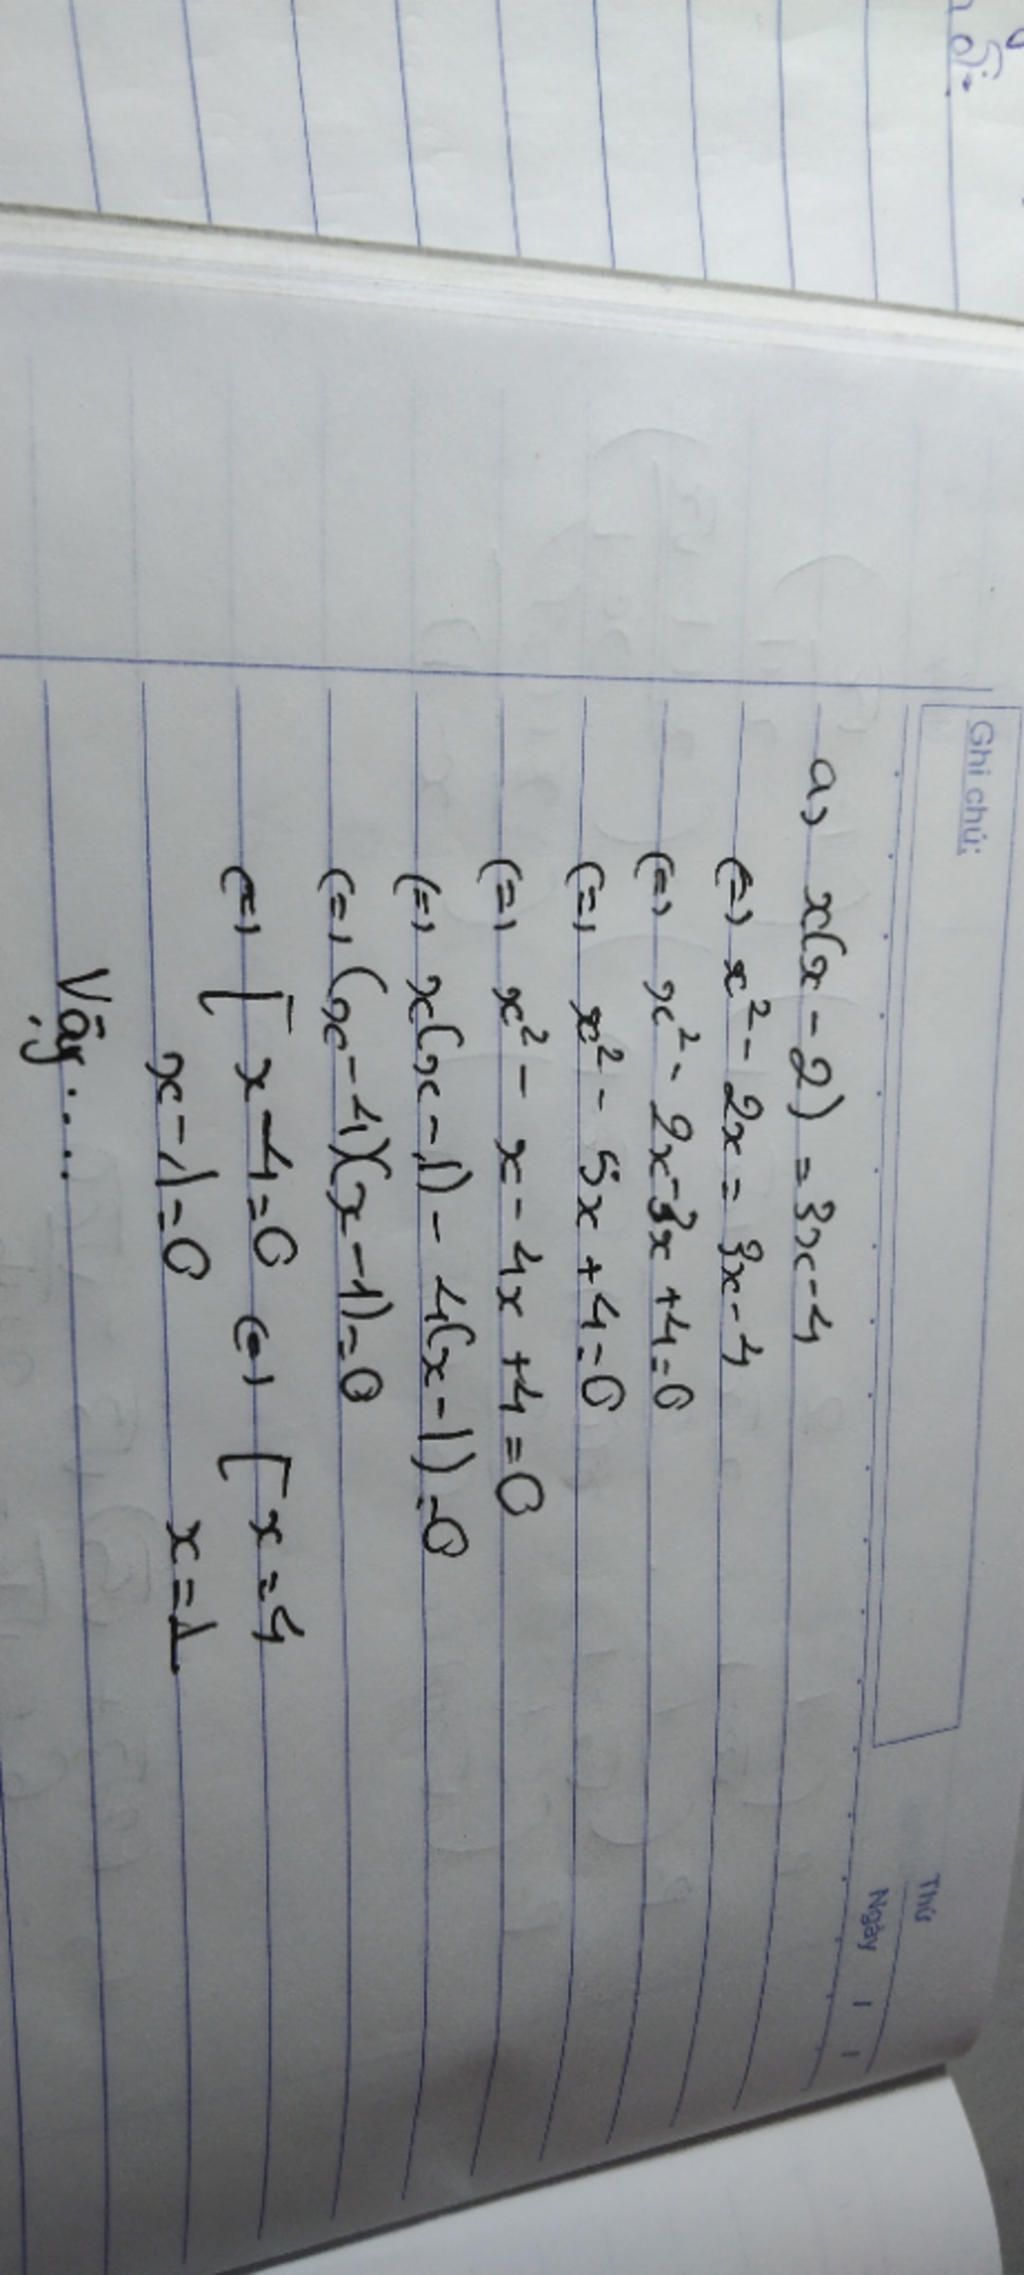 Ghi chú:
Thứ
Ngày / /
a, x(x-2) = 3x-4
(=) x² - 2x = 3x - 4
(=) x² - 2x - 3x + 4 = 0
(=) x² - 5x + 4 = 0
(=) x² - x - 4x + 4 = 0
(=) x(x-1) - 4(x-1) = 0
(=) (x-4)(x-1) = 0
(=) [ x-4=0 (=) [ x=4
x-1=0 x=1
Vậy....